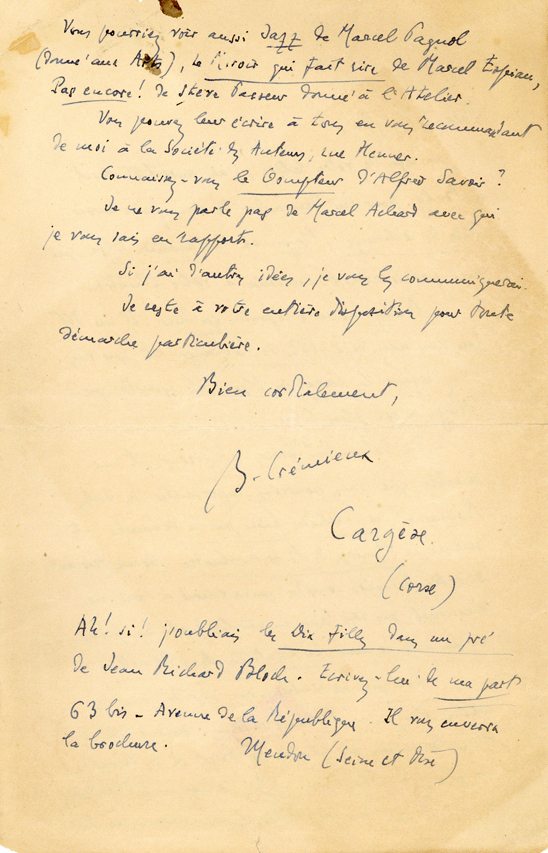 Vous pourriez voir aussi Jazz de Marcel Pagnol
(donné aux Arts), le Miroir qui fait rire de Marcel Espiau,
Pas encore! de Steve Passeur donné à l'Atelier.
Vous pouvez leur écrire à tous en vous recommandant
de moi à la Société des Auteurs, rue Henner.
Connaissez-vous le Dompteur d'Alfred Savoir?
Je ne vous parle pas de Marcel Achard avec qui
je vous sais en rapports.
Si j'ai d'autres idées, je vous les communiquerai.
Je reste à votre entière disposition pour toute
démarche particulière.
Bien cordialement,
B. Crémieux
Cargèse.
(Corse)
Ah! si! j'oubliais les Dix Filles dans un pré
de Jean Richard Bloch. Ecrivez-lui de ma part
63 bis - Avenue de la République. Il vous enverra
la brochure. Meudon (Seine et Oise)